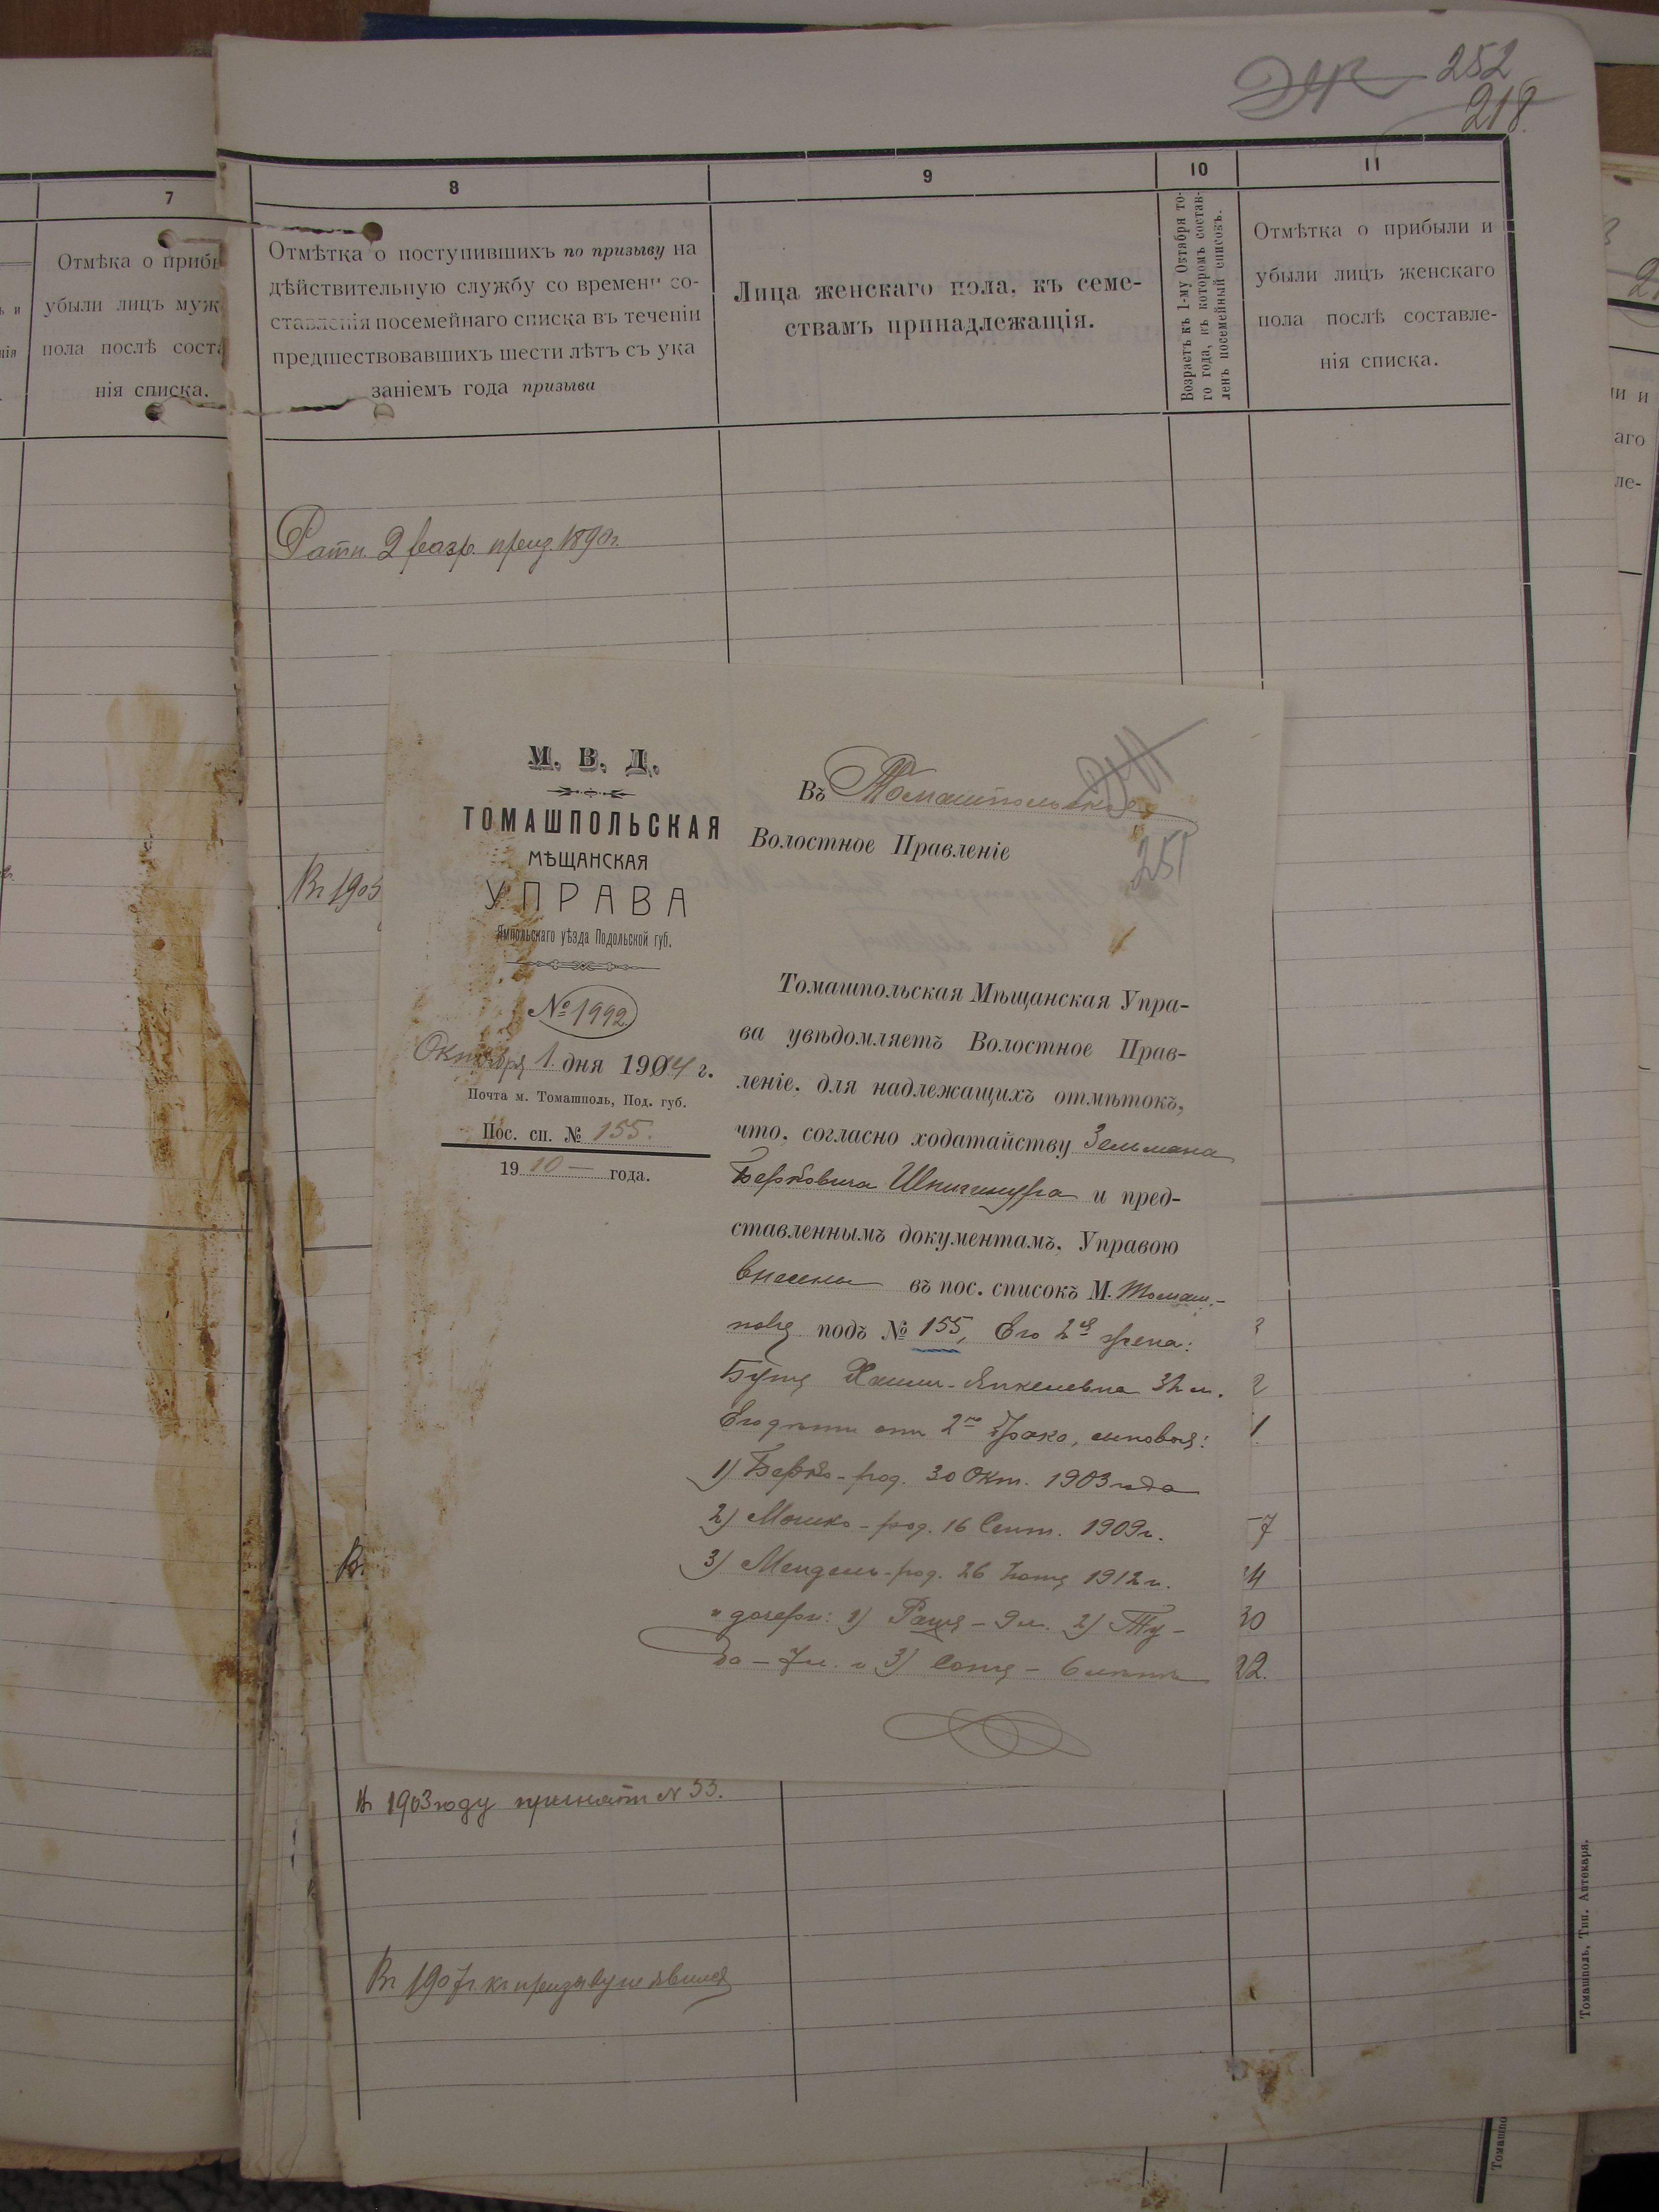 252
218
7
Отмѣка о приб
убыли лицъ муж
пола послѣ соста
нія списка.
8
Отмѣтка о поступившихъ по призыву на
дѣйствительную службу со времени со-
ставленія посемейнаго списка въ теченіи
предшествовавшихъ шести лѣтъ съ ука
заніемъ года призыва
9
Лица женскаго пола, къ семе-
ствамъ принадлежащія.
10
Возрастъ къ 1-му Октября то-
го года, въ которомъ состав-
ленъ посемейный списокъ.
11
Отмѣтка о прибыли и
убыли лицъ женскаго
пола послѣ составле-
нія списка.
Ратн. 2 разр. приз. 1890г.
Въ 1905
М. В. Д.
ТОМАШПОЛЬСКАЯ
МѢЩАНСКАЯ
УПРАВА
Ямпольскаго уѣзда Подольской губ.
№ 1992
Октября 1 дня 1904 г.
Почта м. Томашполь, Под. губ.
Пос. сп. № 155.
1910 — года.
Въ Томашпольское
Волостное Правленіе
251
Томашпольская Мѣщанская Упра-
ва увѣдомляетъ Волостное Прав-
леніе, для надлежащихъ отмѣтокъ,
что, согласно ходатайству Зельмана
Берковича Шпигинура и пред-
ставленнымъ документамъ, Управою
внесены въ пос. списокъ М. Томаш-
поля подъ № 155, Его 2я жена:
Бузя Хаим-Янкелевна 32 л. 2
Его дѣти отъ 2го брака, сыновья: 1
1) Берко - род. 30 Окт. 1903 года
2) Мошко - род. 16 Сент. 1909 г. 7
3) Мендель - род. 26 1912 г. 14
и дочери: 1) Рася - 9 л. 2) Ту- 30
ба - 7 л. и 3) Соня - 6 лѣтъ 22.
Въ 1903 году принятъ N 53.
Въ 1907г. къ призыву не явился
Томашполь, Тип. Аптекаря.